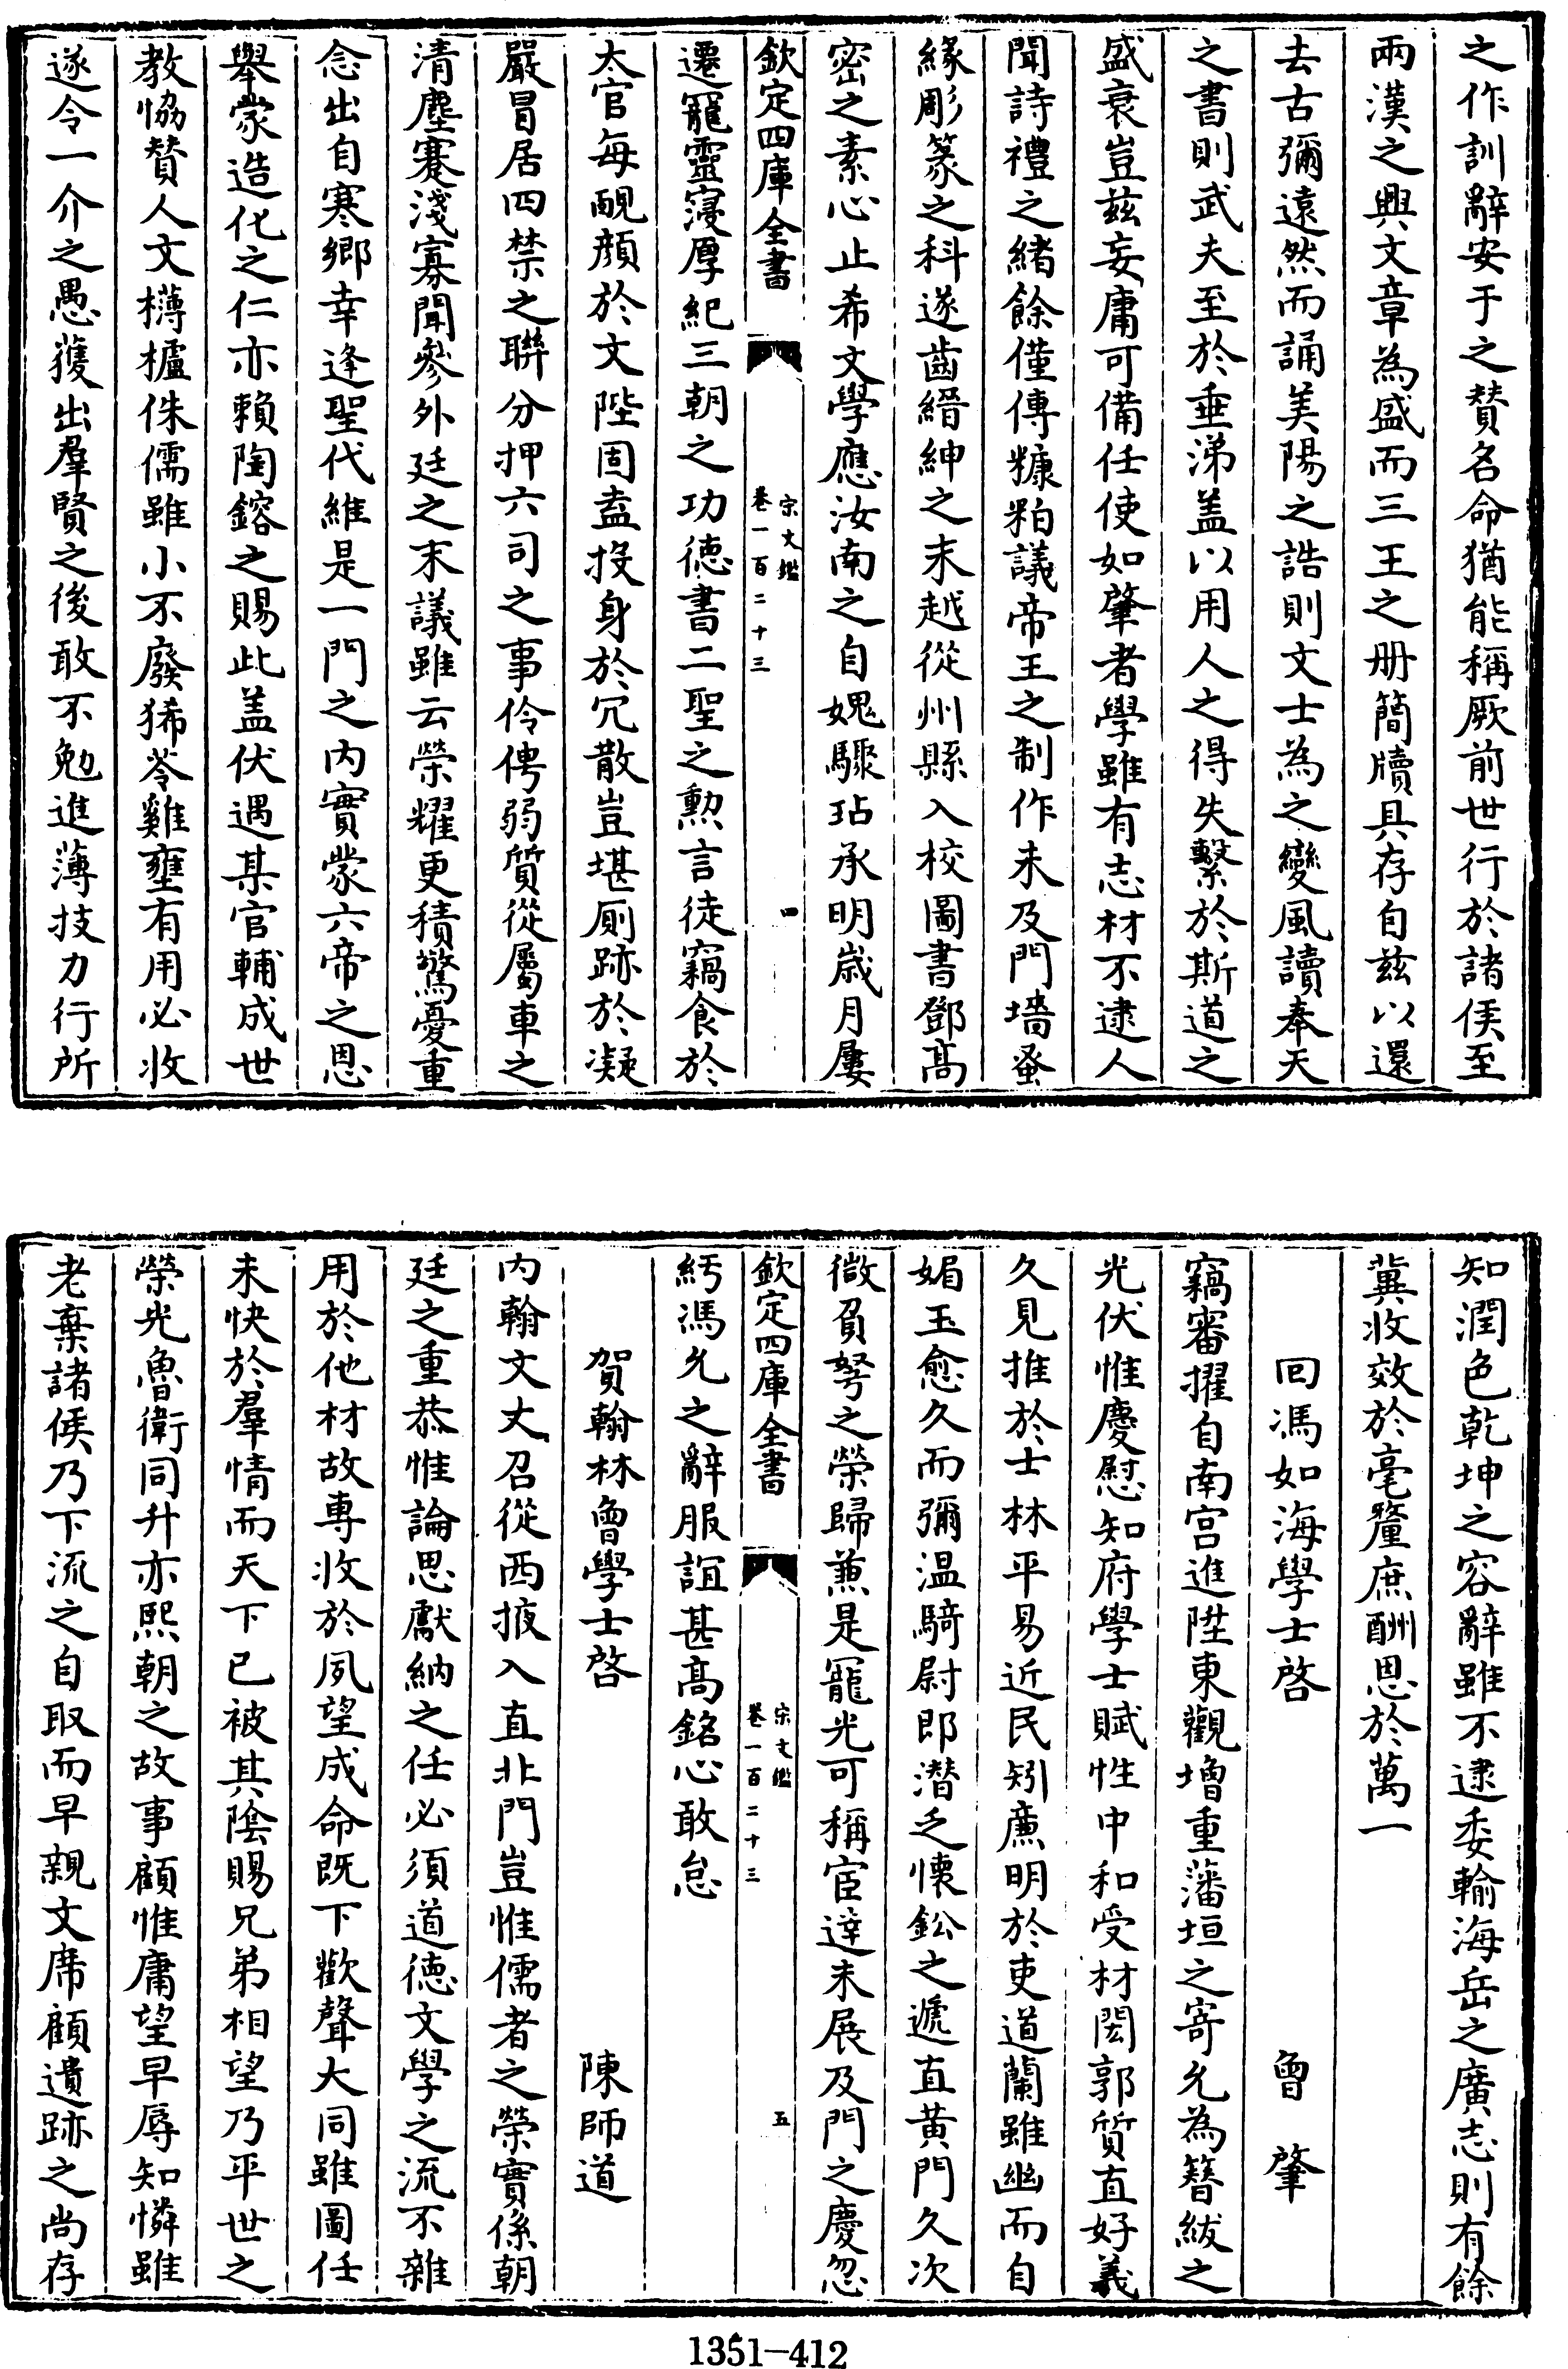 之作訓辭安于之贊名命猶能稱厥前世行於諸侯至
兩漢之興文章為盛而三王之册簡牘具存自兹以還
去古彌遠然而誦美陽之誥則文士為之變風讀奉天
之書則武夫至於垂涕盖以用人之得失繫於斯道之
盛衰豈兹妄庸可備任使如肇者學雖有志材不逮人
聞詩禮之緒餘僅傳糠粕議帝王之制作未及門墻蚤
緣彫篆之科遂齒縉紳之末越從州縣入校圖書鄧髙
密之素心止希文學應汝南之自媿驟玷承明歳月屢
欽定四庫全書
宋文鑑
卷一百二十三
四
遷寵靈寖厚紀三朝之功德書二聖之勲言徒竊食於
太官每靦顔於文陛固盍投身於冗散豈堪厠跡於凝
嚴冒居四禁之聯分押六司之事伶俜弱質從屬車之
清塵蹇淺寡聞參外廷之末議雖云榮耀更積驚憂重
念出自寒鄉幸逢聖代維是一門之内實蒙六帝之恩
舉蒙造化之仁亦賴陶鎔之賜此盖伏遇某官輔成世
教恊贊人文欂櫨侏儒雖小不廢豨苓雞壅有用必收
遂令一介之愚獲出羣賢之後敢不勉進薄技力行所
知潤色乾坤之容辭雖不逮委輸海岳之廣志則有餘
冀收效於毫釐庶酬恩於萬一
回馮如海學士啓　曾肇
竊審擢自南宫進陞東觀增重藩垣之寄允為簪紱之
光伏惟慶慰知府學士賦性中和受材閎郭質直好義
久見推於士林平易近民矧亷明於吏道蘭雖幽而自
媚玉愈久而彌温騎尉郎潛乏懐鈆之遞直黄門久次
㣲負弩之榮歸兼是寵光可稱宦逹未展及門之慶忽
欽定四庫全書
宋文鑑
卷一百二十三
五
紆馮允之辭服誼甚髙銘心敢怠
賀翰林曾學士啓　陳師道
内翰文丈召從西掖入直北門豈惟儒者之榮實係朝
廷之重恭惟論思獻納之任必須道德文學之流不雜
用於他材故専收於夙望成命既下歡聲大同雖圖任
未快於羣情而天下已被其陰賜兄弟相望乃平世之
榮光魯衛同升亦熙朝之故事顧惟庸望早辱知憐雖
老棄諸侯乃下流之自取而早親文席顧遺跡之尚存
1351-412